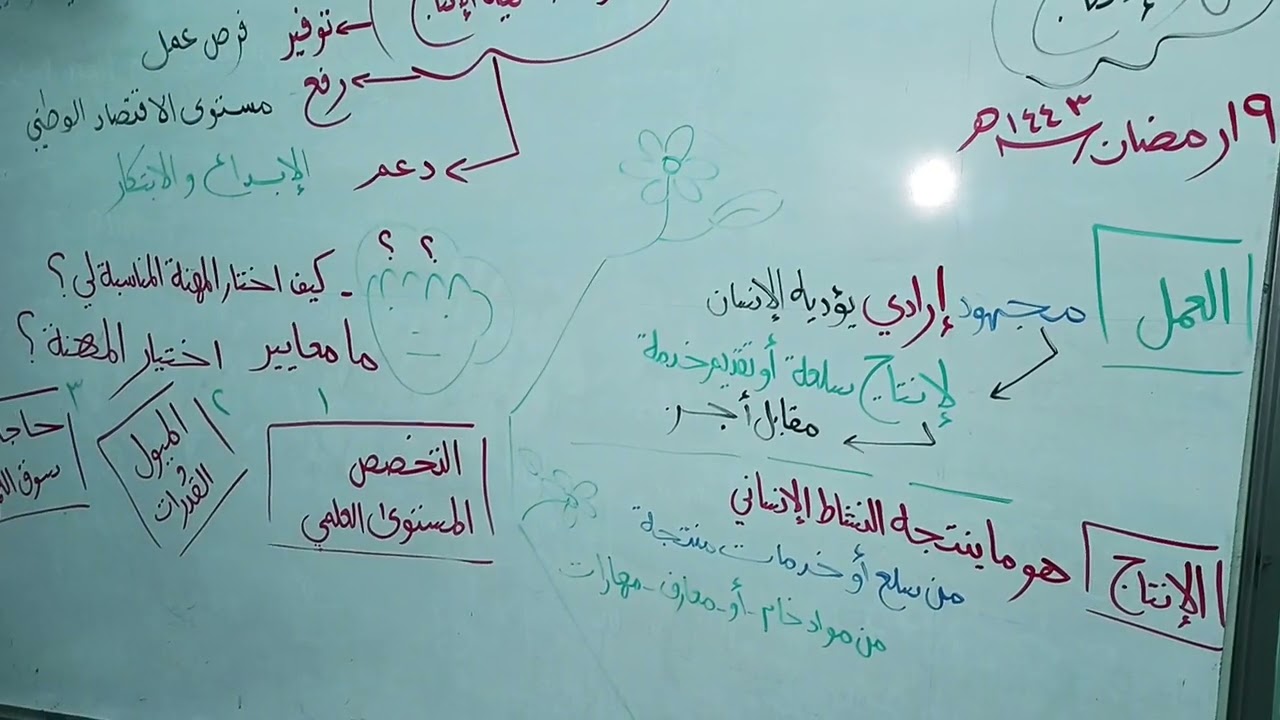 ١٩ رمضان ١٤٤٣هـ
العمل
مجهود إرادي يؤديه الإنسان
لإنتاج سلعة أو تقديم خدمة
مقابل أجر
الإنتاج
هو ما ينتجه النشاط الإنساني
من سلع أو خدمات منتجة
من مواد خام - أو - معارف - مهارات
توفير فرص عمل
رفع مستوى الاقتصاد الوطني
دعم الإبداع والابتكار
؟ ؟
- كيف اختار المهنة المناسبة لي؟
ما معايير اختيار المهنة؟
١
التخصص
المستوى العلمي
٢
الميول
القدرات
٣
سوق